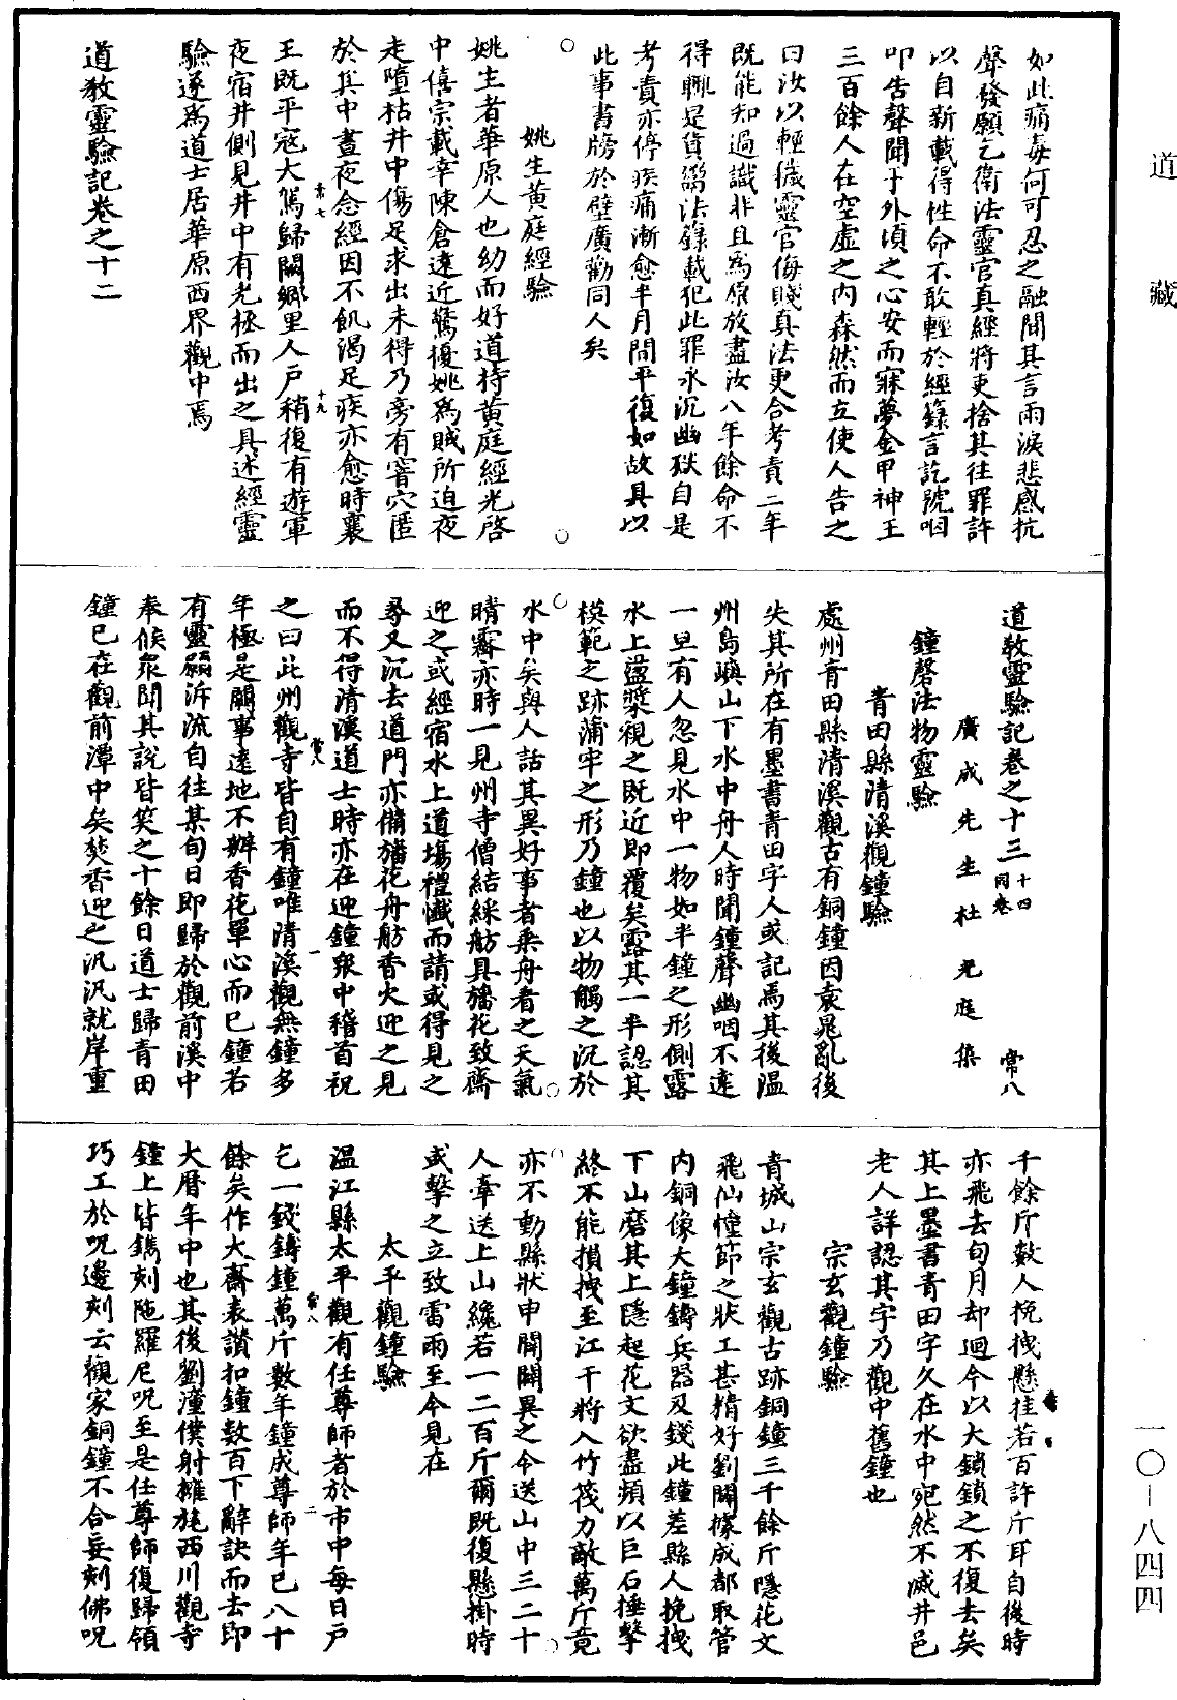 道藏
如此痛毒何可忍之融聞其言雨淚悲感抗
聲發願乞衛法靈官真經將吏捨其往罪許
以自新載得性命不敢輕於經籙言訖號咽
叩告聲聞于外頃之心安而寐夢金甲神王
三百餘人在空虛之內森然而立使人告之
曰汝以輕穢靈官侮賤真法更合考責二年
既能知過識非且為原放盡汝八年餘命不
得輙是貨鬻法籙載犯此罪永沉幽獄自是
考責亦停疾痛漸愈半月間平復如故具以
此事書牓於壁廣勸同人矣
姚生黃庭經驗
姚生者華原人也幼而好道持黃庭經光啓
中僖宗載幸陳倉遠近驚擾姚為賊所迫夜
走墮枯井中傷足求出未得乃旁有窨穴匿
於其中晝夜念經因不飢渴足疾亦愈時襄
王既平寇大駕歸闕鄉里人戶稍復有遊軍
夜宿井側見井中有光極而出之具述經靈
驗遂為道士居華原西界觀中焉
道教靈驗記卷之十二
道教靈驗記卷之十三 十四同卷 常八
廣成先生杜光庭集
鐘磬法物靈驗
青田縣清溪觀鐘驗
處州青田縣清溪觀古有銅鐘因袁晁亂後
失其所在有墨書青田字人或記焉其後溫
州島嶼山下水中舟人時聞鐘聲幽咽不遠
一旦有人忽見水中一物如半鐘之形側露
水上盪槳視之既近即覆矣露其一半認其
模範之跡蒲牢之形乃鐘也以物觸之沉於
水中矣與人話其異好事者乘舟看之天氣
晴霽亦時一見州寺僧結綵舫具旛花致齋
迎之或經宿水上道場禮懺而請或得見之
尋又沉去道門亦備旛花舟舫香火迎之見
而不得清溪道士時亦在迎鐘眾中稽首祝
之曰此州觀寺皆自有鐘唯清溪觀無鐘多
年極是闕事遠地不辦香花單心而已鐘若
有靈願泝流自往某旬日即歸於觀前溪中
奉候眾聞其說皆笑之十餘日道士歸青田
鐘已在觀前潭中矣焚香迎之汎汎就岸重
千餘斤數人挽拽懸挂若百許斤耳自後時
亦飛去旬月却迴今以大鎖鎖之不復去矣
其上墨書青田字久在水中宛然不滅井邑
老人詳認其字乃觀中舊鐘也
宗玄觀鐘驗
青城山宗玄觀古跡銅鐘三千餘斤隱花文
飛仙幢節之狀工甚精好劉闢據成都取管
內銅像大鐘鑄兵器及錢此鐘差縣人挽拽
下山磨其上隱起花文欲盡頻以巨石捶擊
終不能損拽至江干將入竹筏力敵萬斤竟
亦不動縣狀申闢闢異之令送山中三二十
人牽送上山纔若一二百斤爾既復懸掛時
或擊之立致雷雨至今見在
太平觀鐘驗
溫江縣太平觀有任尊師者於市中每日戶
乞一錢鑄鐘萬斤數年鐘成尊師年已八十
餘矣作大齋表讚扣鐘數百下辭訣而去即
大曆年中也其後劉潼僕射擁旄西川觀寺
鐘上皆鐫刻陁羅尼呪至是任尊師復歸領
巧工於呪邊刻云觀家銅鐘不合妄刻佛呪
一〇-八四四